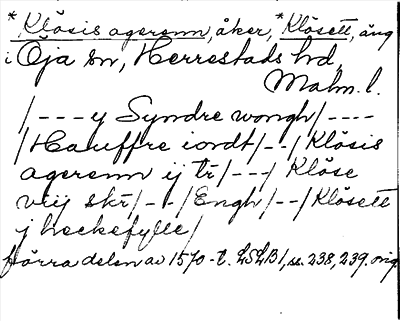 *Klösis agerenn, åker, *Klösett, äng
i Öja sn, Herrestads hd,
Malm. l.
/---y Syndre wongh/----
/Hauffre iordt/--/Klösis
agerenn ij tr/---/Klöse
viij skr/--/Engh/--/Klösett
j heckefylle/
förra delen av 1570-t. LSLB1, ss. 238, 239. orig.